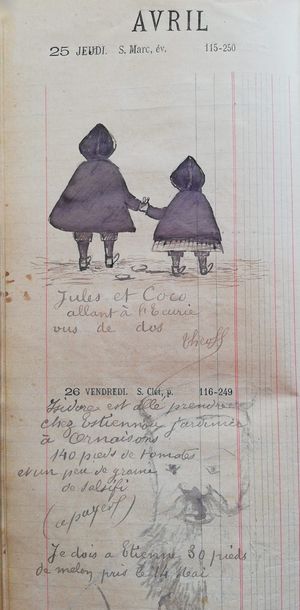 AVRIL
25 JEUDI. S. Marc, év. 115-250
Jules et Coco
allant à l'Ecurie
vus de dos
26 VENDREDI. S. Clet, p. 116-249
Isidore est allé prendre
chez Estienne jardinier
à Ornaisons
140 pieds de tomates
et un peu de graine
de salsifi
(a payer)
Je dois a Etienne 30 pieds
de melon pris le 14 Mai